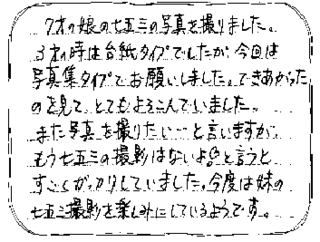 7才の娘の七五三の写真を撮りました。
3才の時は台紙タイプでしたが、今回は
写真集タイプでお願いしました。できあがった
のを見て、とてもよろこんでいました。
また写真を撮りたい…と言いますが、
もう七五三の撮影はないよ…と言うと
すごくがっかりしていました。今度は妹の
七五三撮影を楽しみにしているようです。